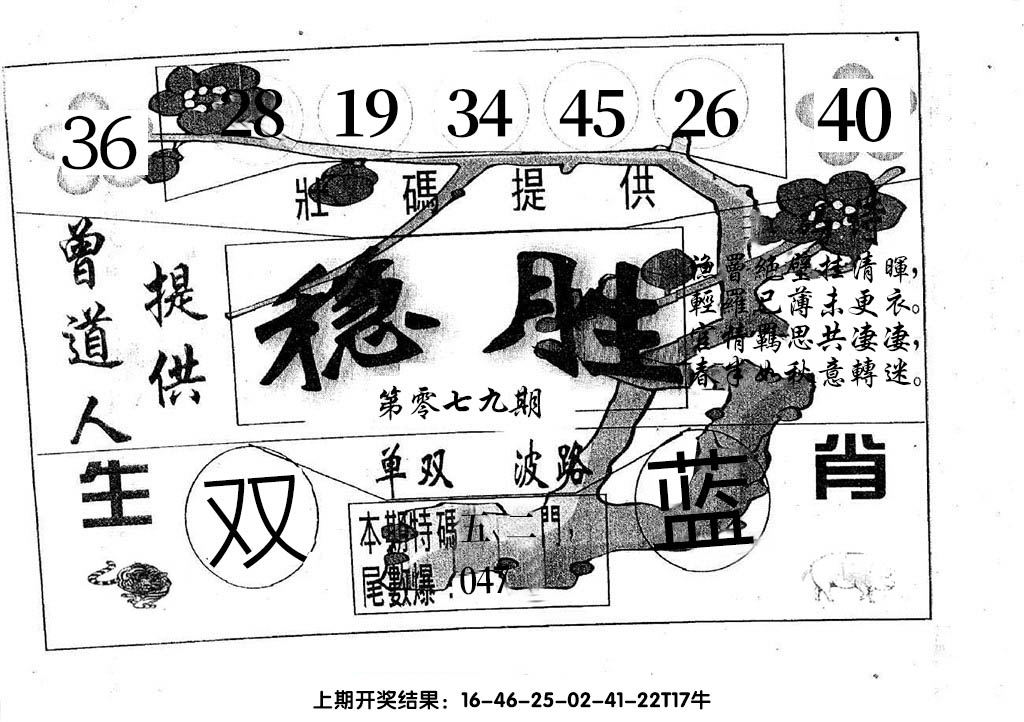 36 28 19 34 45 26 40
壯碼提供
曾道人
提供
稳胜
第零七九期
輕羅已薄未更衣。
官情羈思共淒淒,
春半如秋意轉迷。
单双 波路
生肖
双
蓝
本期特碼五、二門,
尾數爆:047
上期开奖结果:16-46-25-02-41-22T17牛